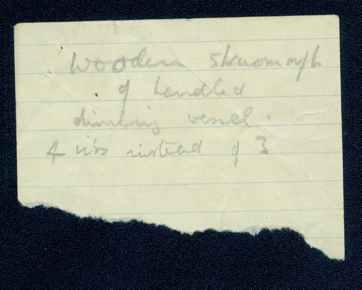 Wooden
of handled
drinking vessel.
4 ribs instead of 3